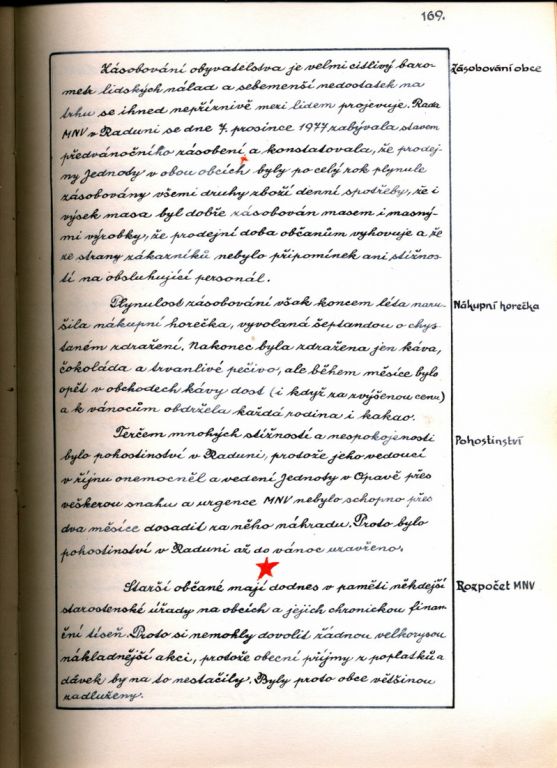 169.
Zásobování obyvatelstva je velmi citlivý baro-
metr lidských nálad a sebemenší nedostatek na
trhu se ihned nepříznivě mezi lidem projevuje. Rada
MNV v Raduni se dne 7. prosince 1977 zabývala stavem
předvánočního zásobení a konstatovala, že prodej-
ny Jednoty v obou obcích byly po celý rok plynule
zásobovány všemi druhy zboží denní spotřeby, že i
výsek masa byl dobře zásobován masem i masný-
mi výrobky, že prodejní doba občanům vyhovuje a že
ze strany zákazníků nebylo připomínek ani stížnos-
tí na obsluhující personál.
Zásobování obce
Plynulost zásobování však koncem léta naru-
šila nákupní horečka, vyvolaná šeptandou o chys-
taném zdražení. Nakonec byla zdražena jen káva,
čokoláda a trvanlivé pečivo, ale během měsíce bylo
opět v obchodech kávy dost (i když za zvýšenou cenu)
a k vánocům obdržela každá rodina i kakao.
Nákupní horečka
Terčem mnohých stížností a nespokojenosti
bylo pohostinství v Raduni, protože jeho vedoucí
v říjnu onemocněl a vedení Jednoty v Opavě přes
veškerou snahu a urgence MNV nebylo schopno přes
dva měsíce dosadit za něho náhradu. Proto bylo
pohostinství v Raduni až do vánoc uzavřeno.
Pohostinství
Starší občané mají dodnes v paměti někdejší
starostenské úřady na obcích a jejich chronickou finan-
ční tíseň. Proto si nemohly dovolit žádnou velkorysou
nákladnější akci, protože obecní příjmy z poplatků a
dávek by na to nestačily. Byly proto obce většinou
zadluženy.
Rozpočet MNV